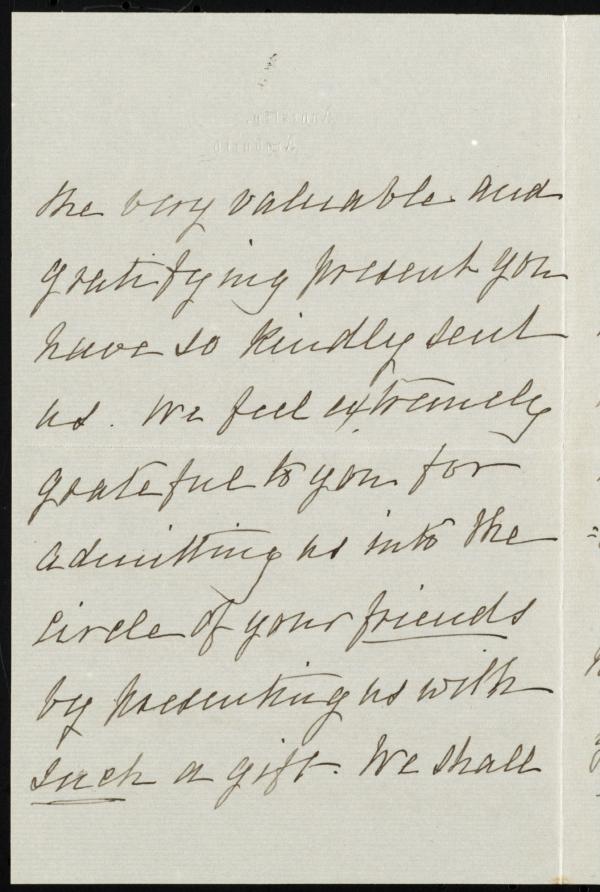 the very valuable and
gratifying present you
have so kindly sent
us. We feel extremely
grateful to you for
admitting us into the
circle of your friends
by presenting us with
such a gift. We shall